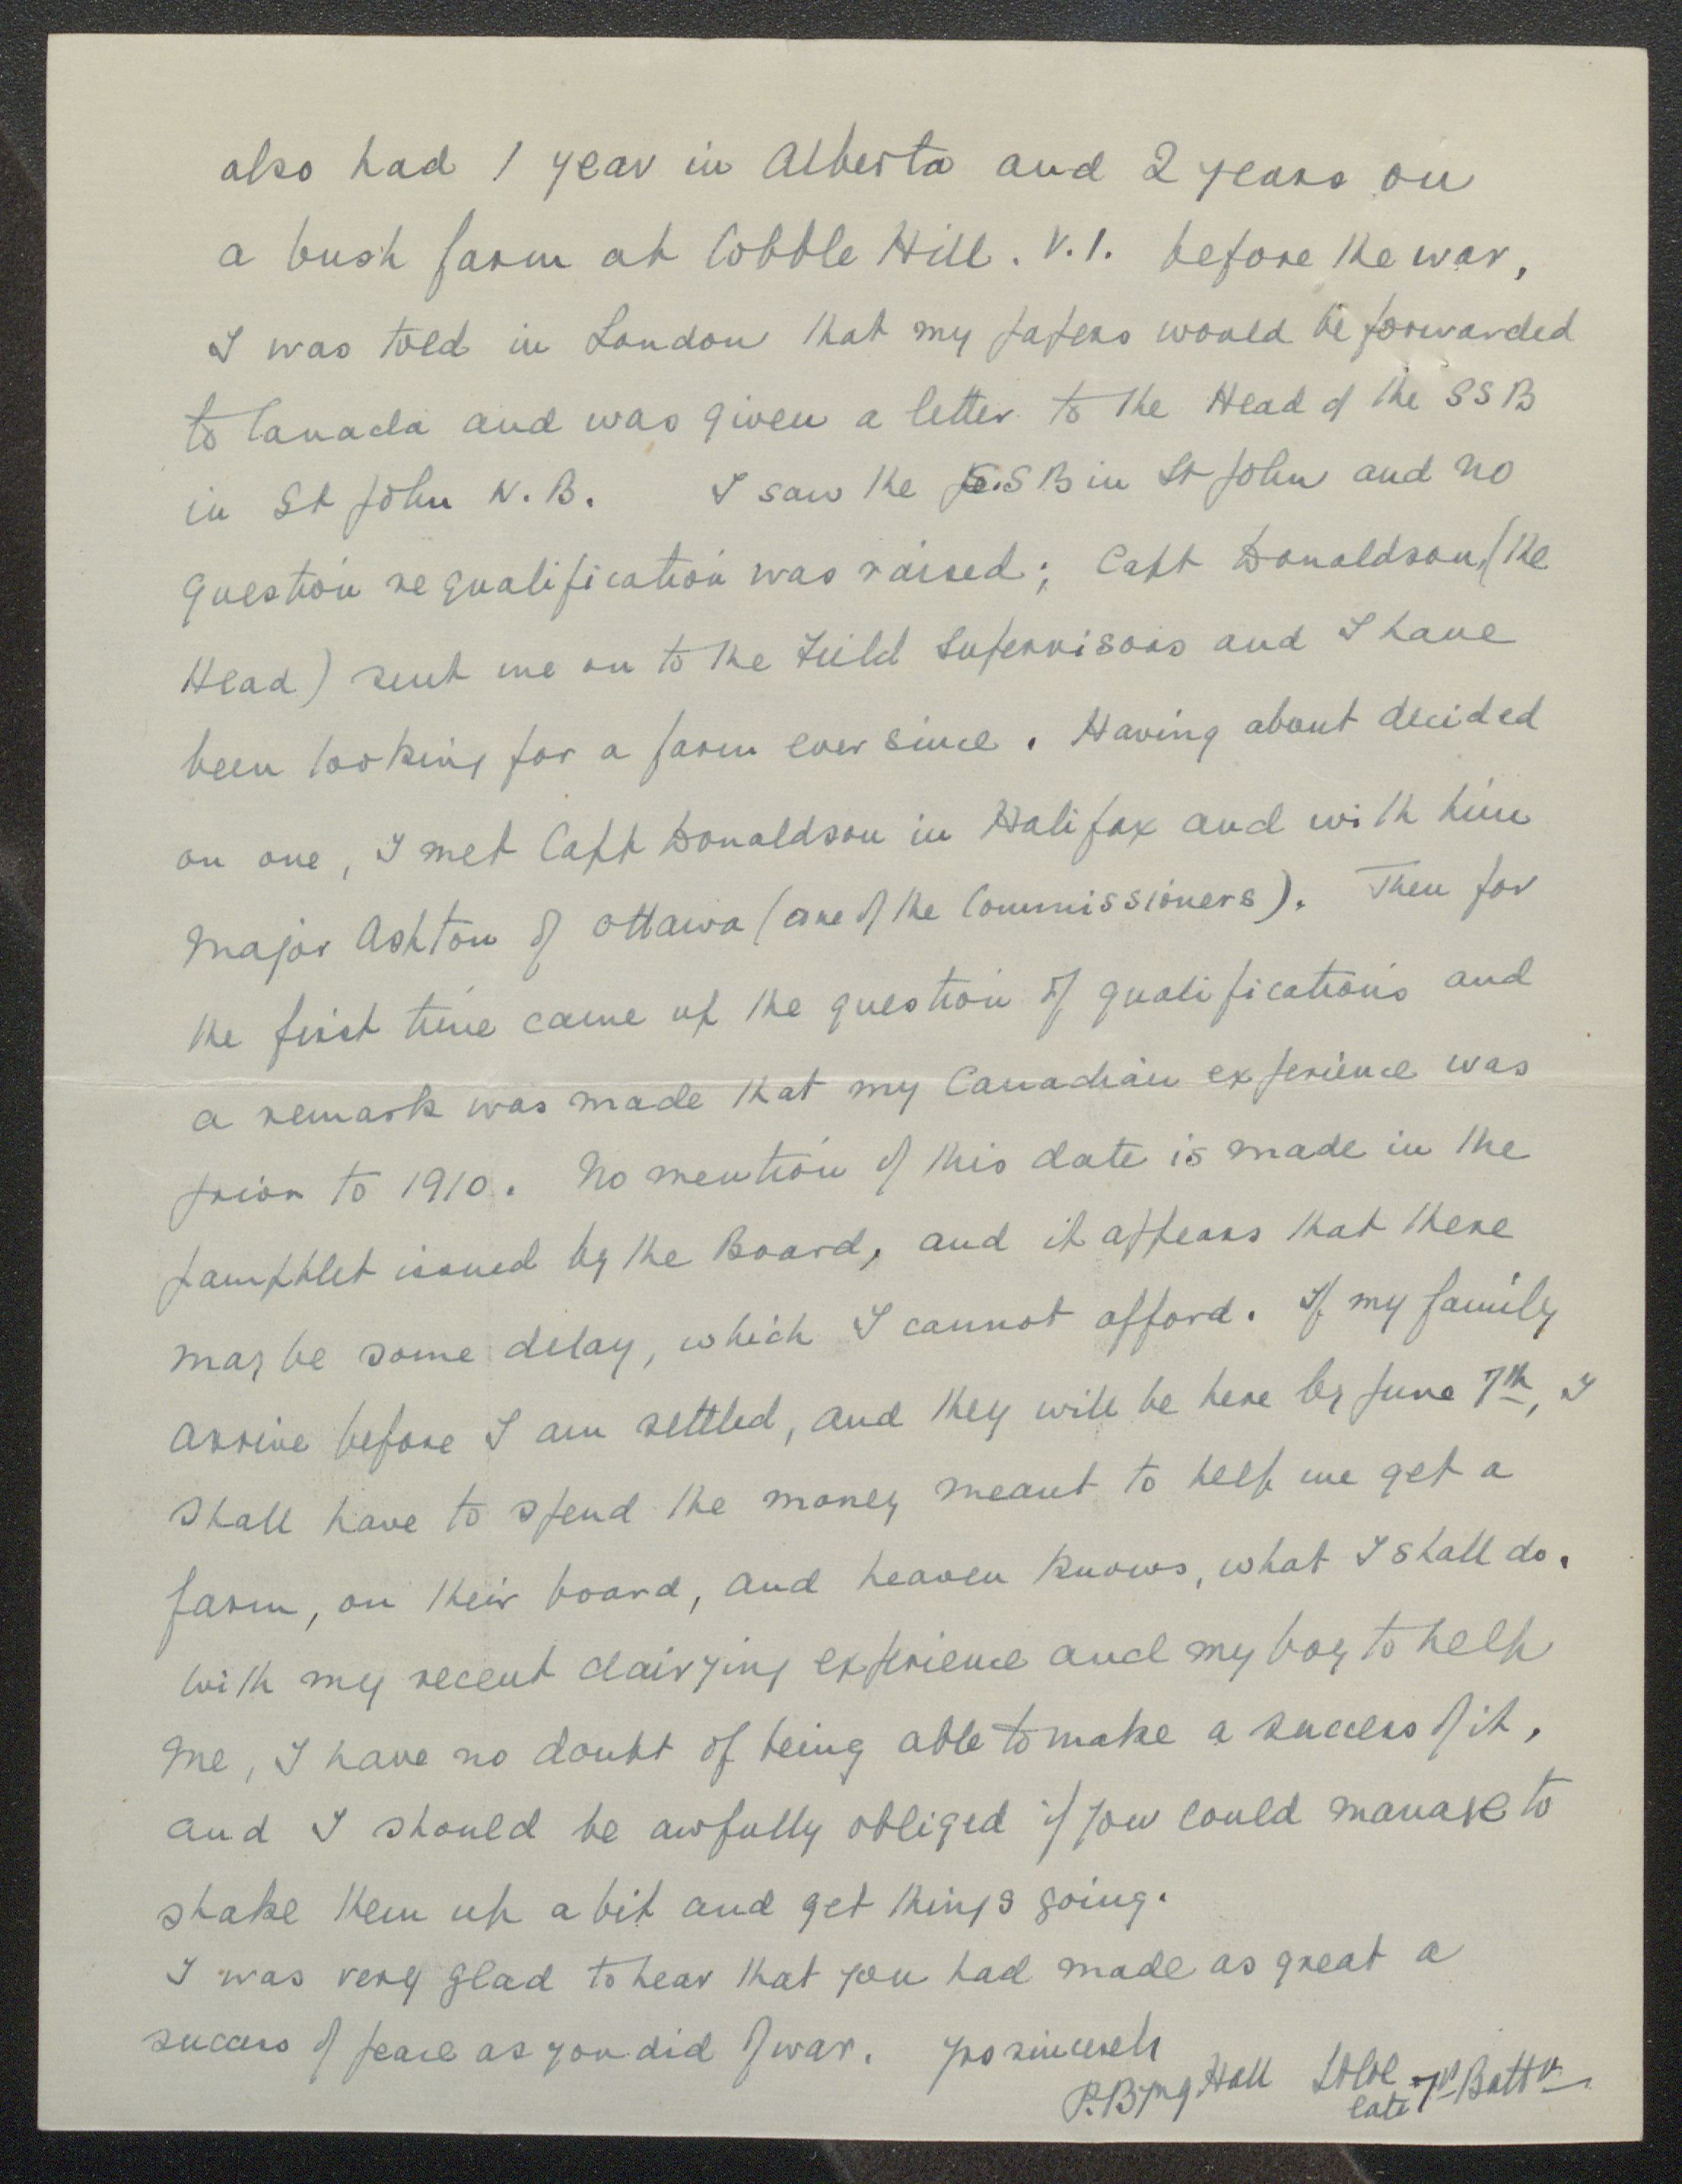 also had 1 year in Alberta and 2 years on
a bush farm at Cobble Hill. V.I. before the war,
I was told in London that my papers would be forwarded
to Canada and was given a letter to the Head of the SSB
in St John N.B. I saw the S.S B in St John and no
question re qualification was raised; Capt Donaldson, (the
Head) sent me on to the Feild Supervisors and I have
been looking for a farm ever since. Having about decided
on one, I met Capt Donaldson in Halifax and with him
Major Ashton of Ottawa (one of the Commissioners). Then for
the first time came up the question of qualifications and
a remark was made that my Canadian experience was
prior to 1910. No mention of this date is made in the
pamphlet issued by the Board, and it appears that there
may be some delay, which I cannot afford. If my family
arrive before I am settled, and they will be here by June 7th, I
shall have to spend the money meant to help me get a
farm, on their board, and heaven knows, what I shall do.
With my recent dairying experience and my boy to help
me, I have no doubt of being able to make a success of it,
and I should be awfully obliged if you could manage to
shake them up a bit and get things going.
I was very glad to hear that you had made as great a
success of peace as you did of war. Yrs sincerely
P. Byng Hall Lt Col
late 7th Battn